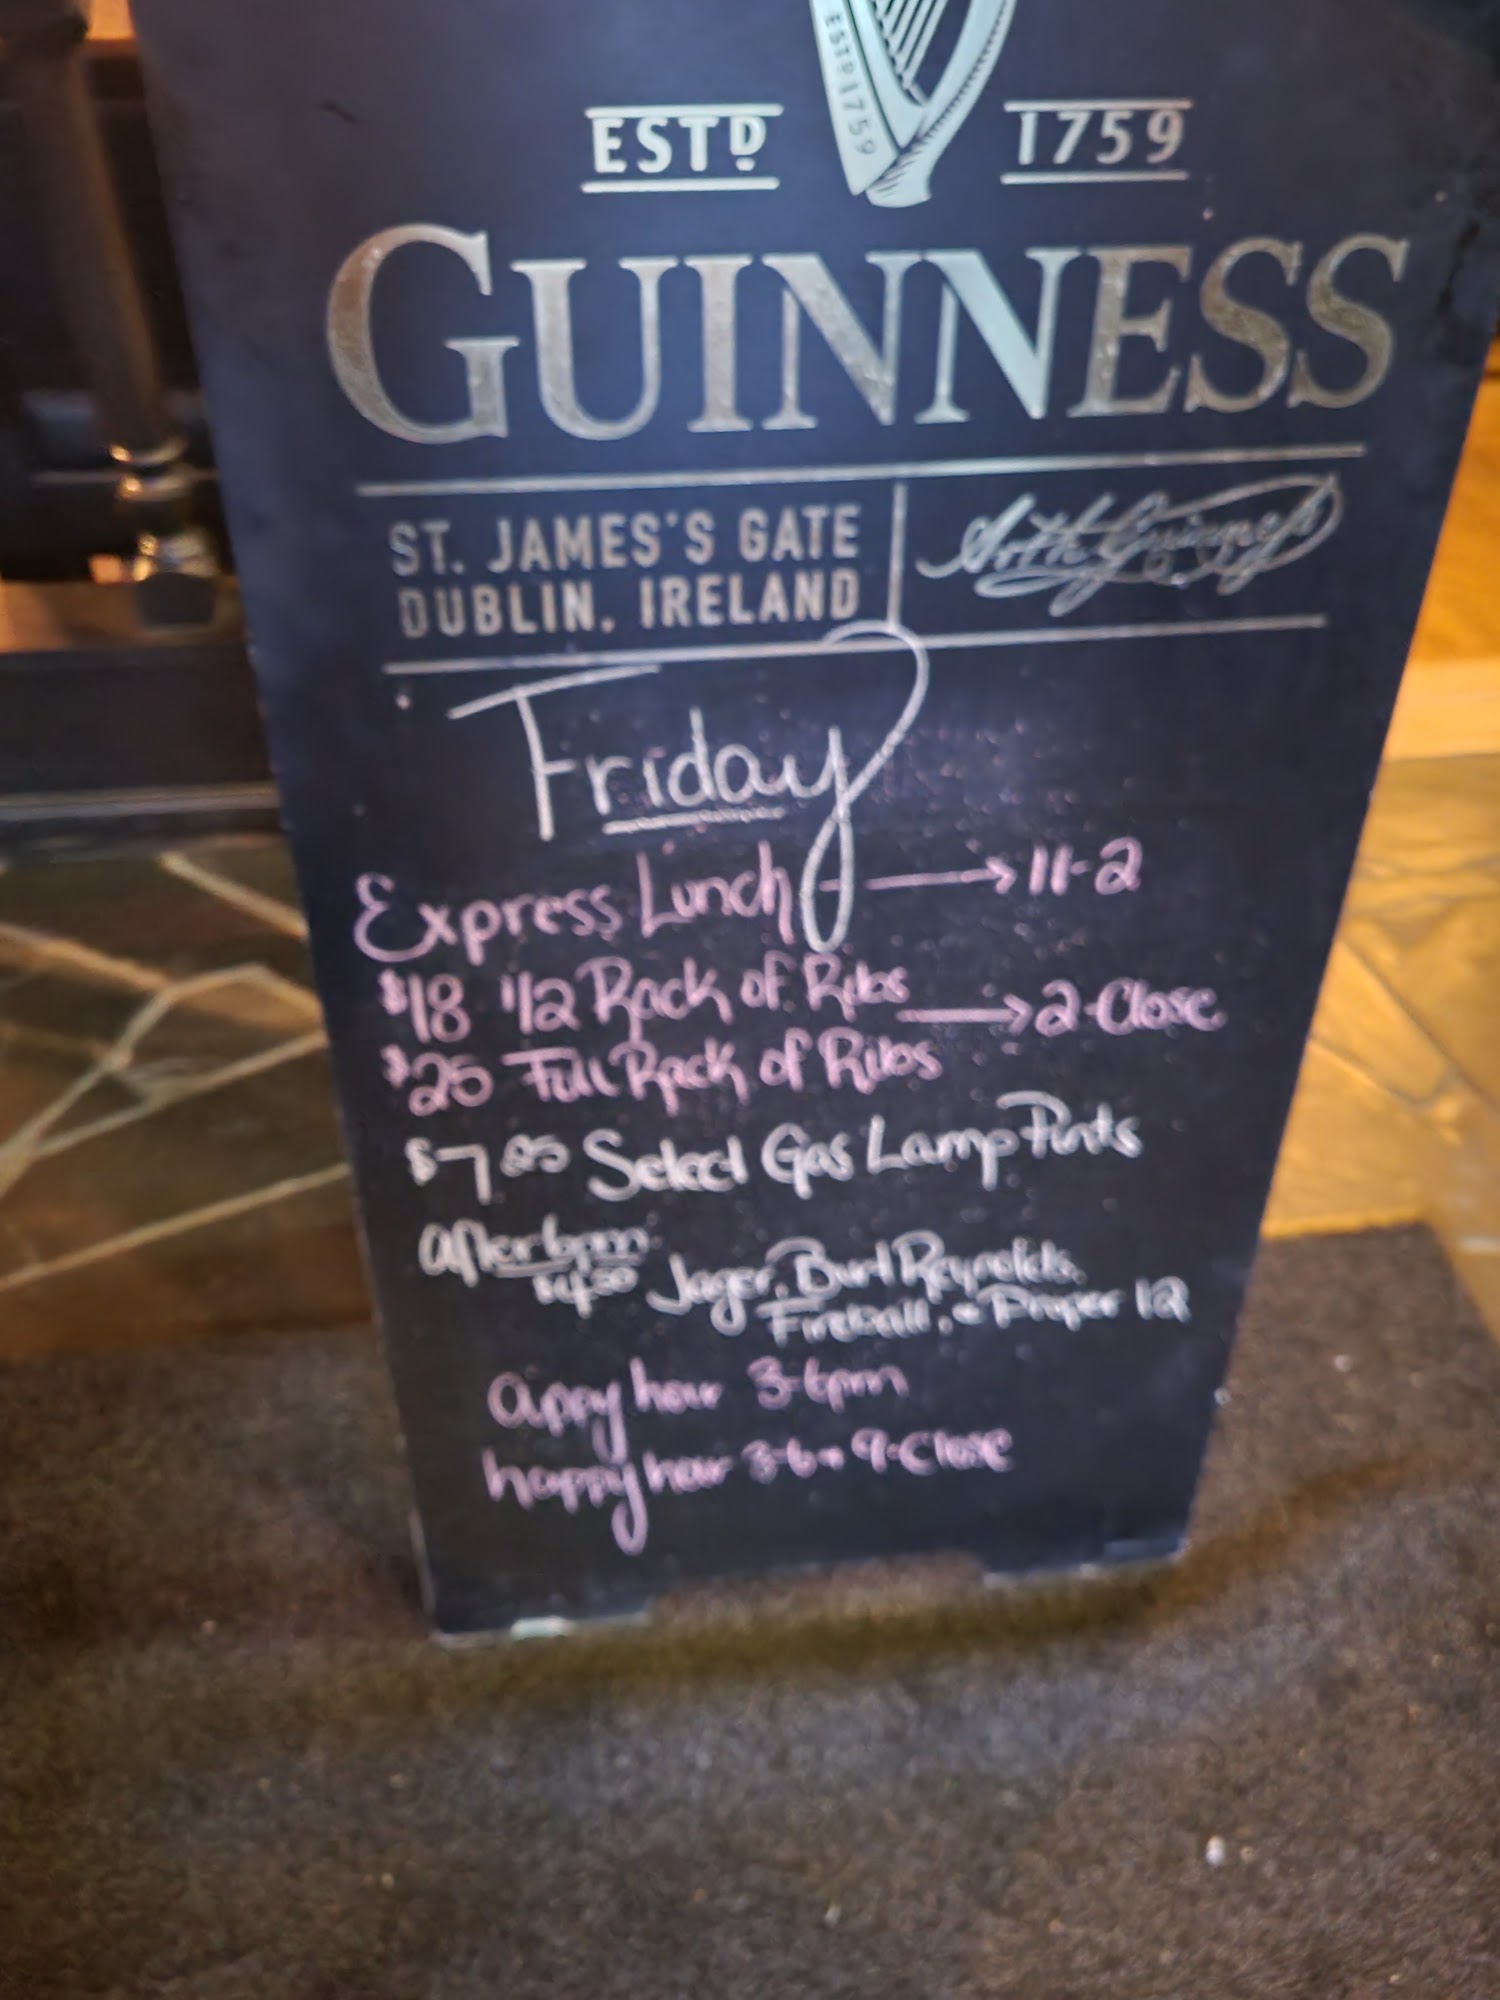 ESTD 1759
ESTD 1759
GUINNESS
ST. JAMES'S GATE
DUBLIN, IRELAND
Arth Guinness
Friday
Express Lunch → 11-2
$18 1/2 Rack of Ribs → 2-Close
$25 Full Rack of Ribs
$7 Select Gas Lamp Pints
After 6pm
$4.00 Jager, Burt Reynolds,
Fireball, + Proper 12
appy hour 3-6pm
happy hour 3-6 + 9-Close